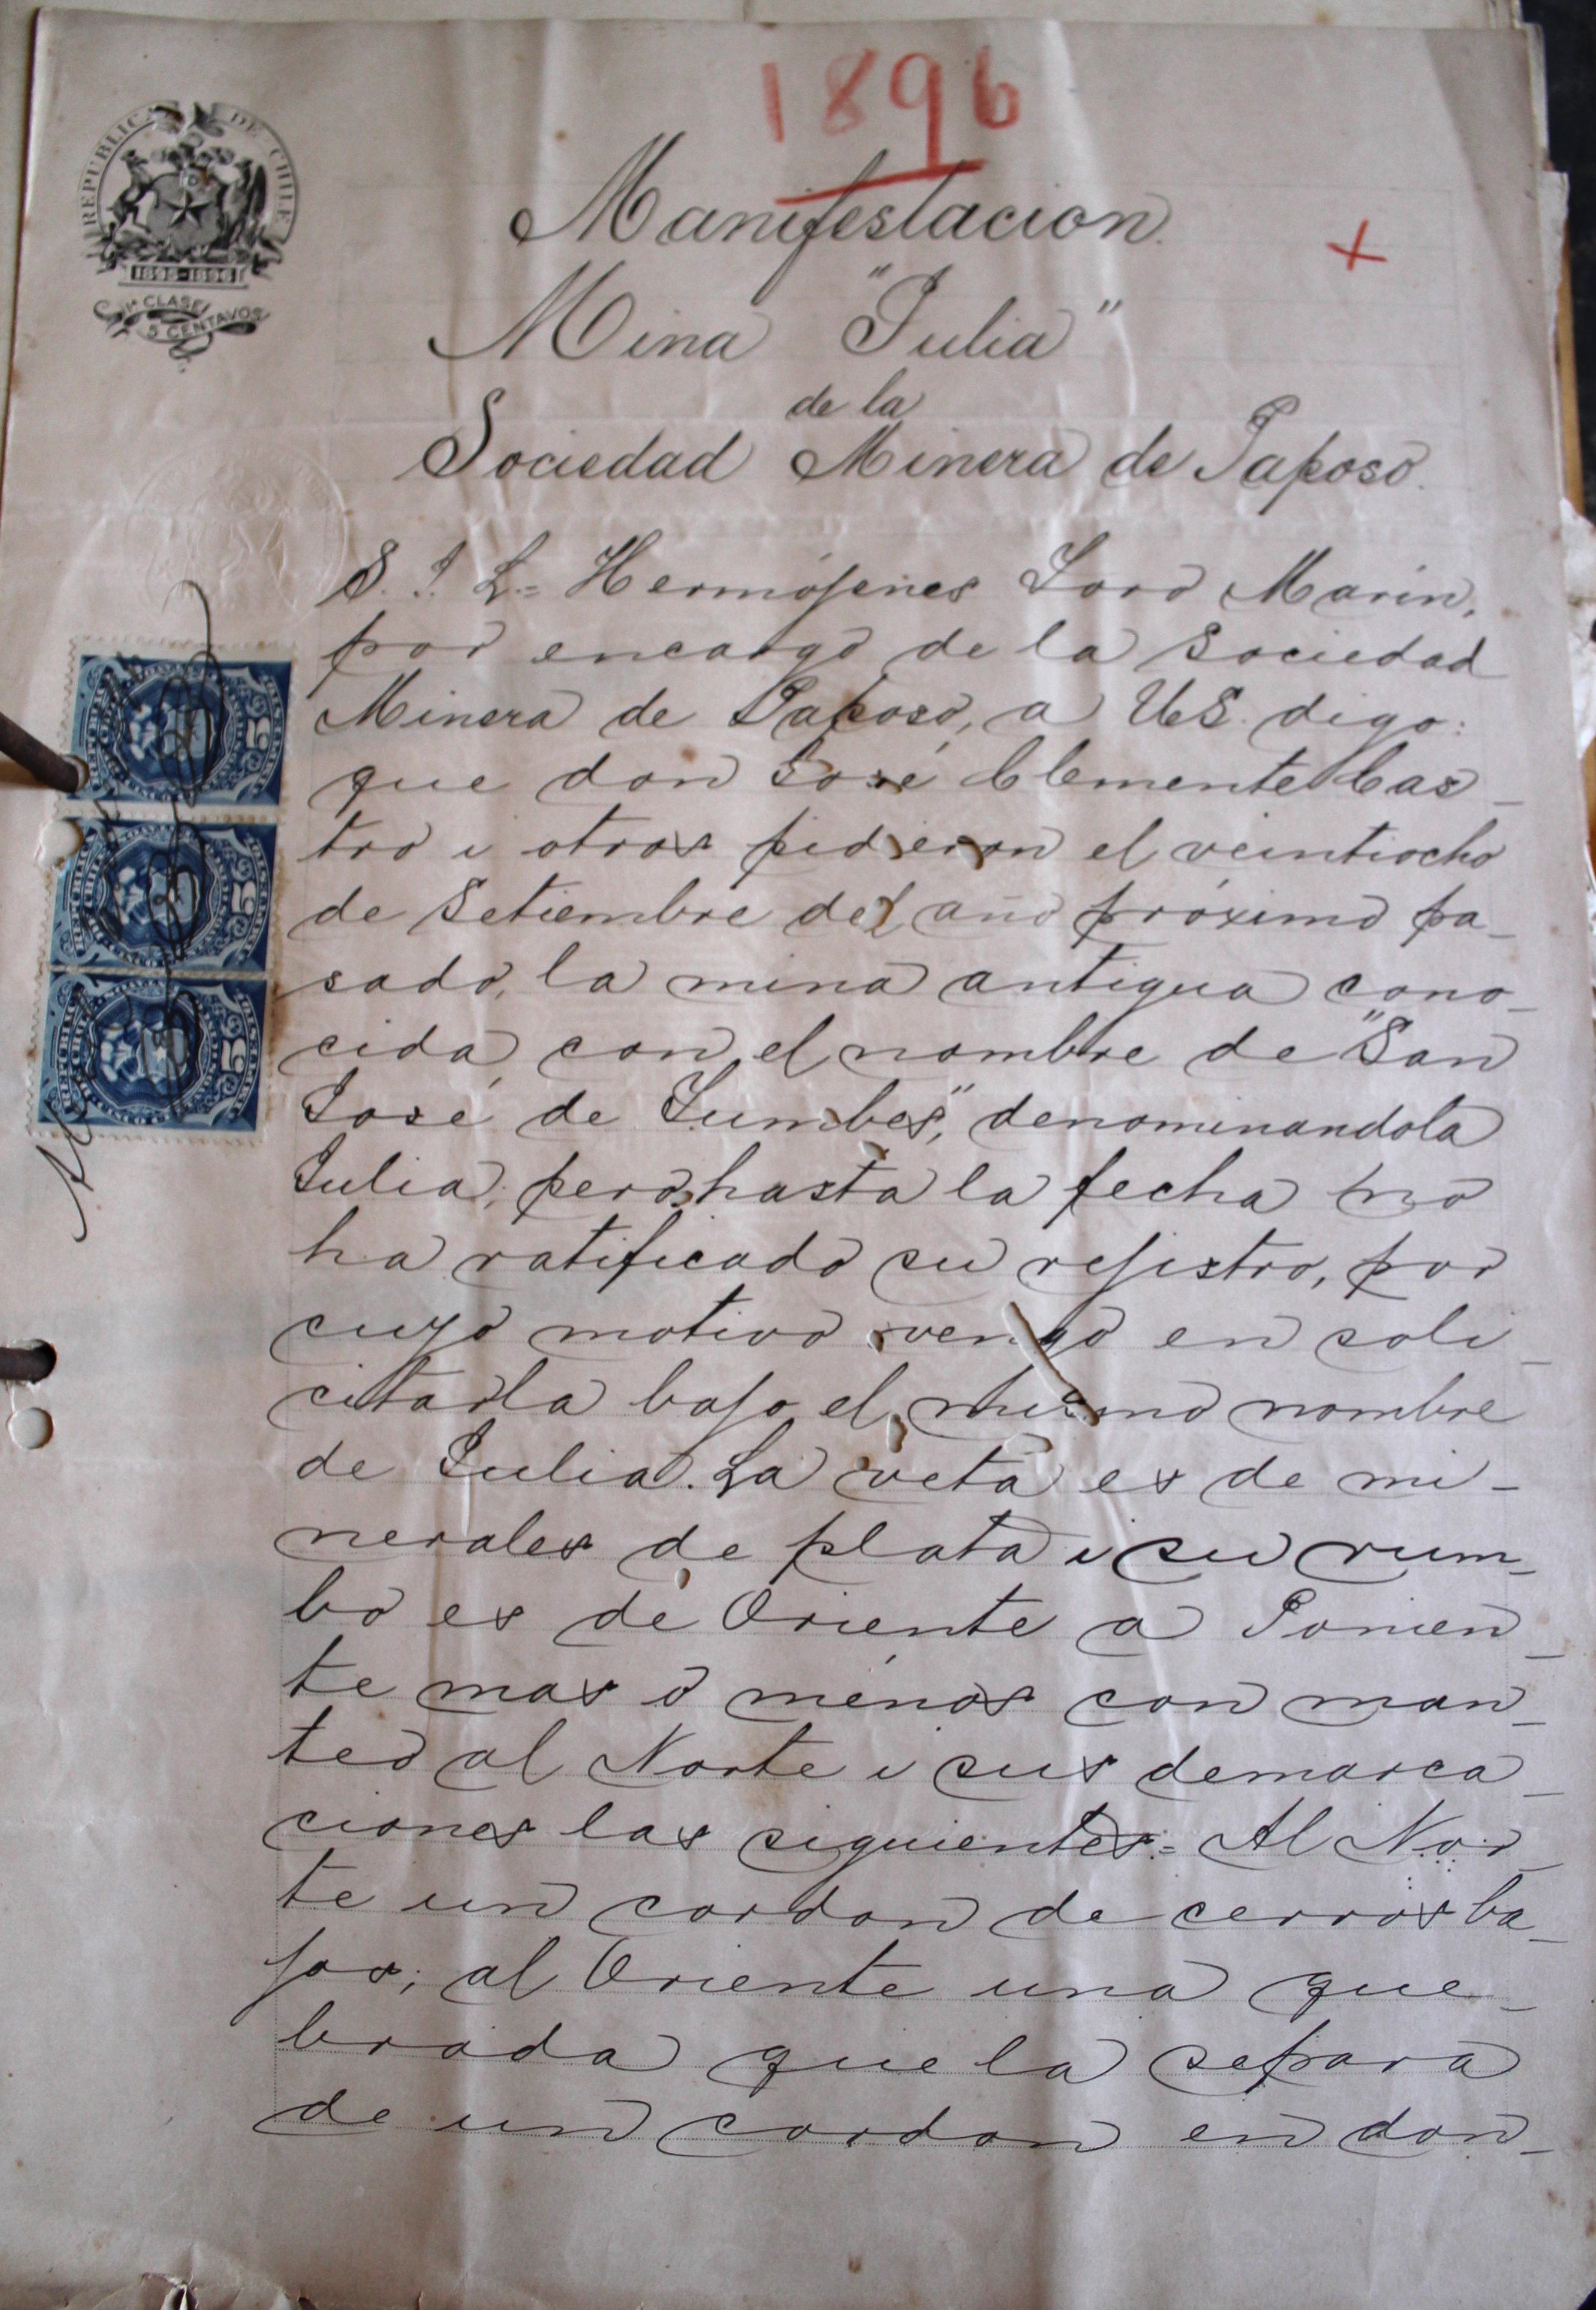 1896
REPUBLICA DE CHILE
1895-1896
1ª CLASE
5 CENTAVOS
Manifestacion
+
Mina "Julia"
de la
Sociedad Minera de Paposo.
S. J. L.= Hermójenes Toro Marin,
por encargo de la Sociedad
Minera de Paposo, a US. digo:
que don José Clemente Cas-
tro i otros pidieron el veintiocho
de Setiembre del año próximo pa-
sado, la mina antigua cono-
cida con el nombre de "San
José de Tumbes", denominandola
Julia; pero hasta la fecha no
ha ratificado su rejistro, por
cuyo motivo vengo en soli-
citarla bajo el mismo nombre
de Julia. La veta es de mi-
nerales de plata i su rum-
bo es de Oriente a Ponien-
te mas o ménos con man-
teo al Norte i sus demarca-
ciones las siguientes:= Al Nor-
te un cordon de cerros ba-
jos; al Oriente una que-
brada que la separa
de un cordon en don-
5
5
5